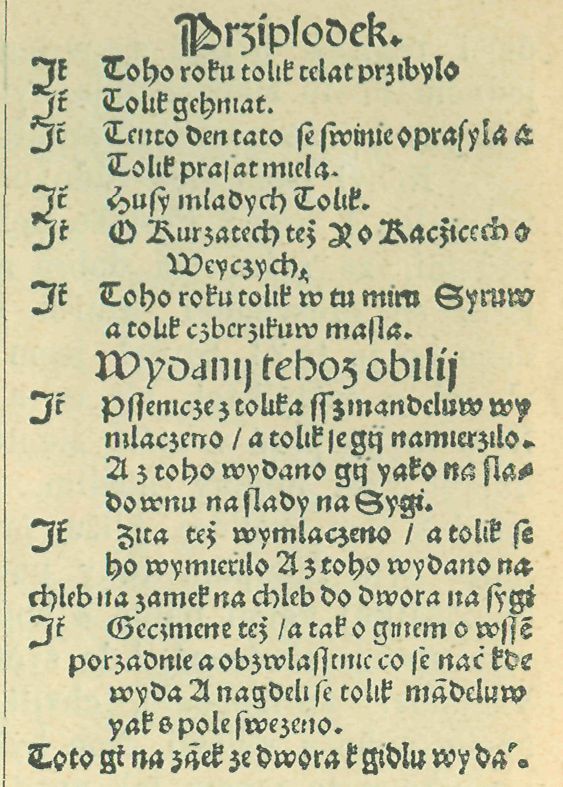 Przipſodek.
Jť Toho roku tolik telat przibylo
Jť Tolik gehniat.
Jť Tento den tato ſe ſwinie opraſyla a
Tolik praſat miela.
Jť Huſy mladych Tolik.
Jť O Kurzatech též Y o Kaczicech o
Weyczych,
Jť Toho roku tolik w tu miru Syruw
a tolik czberzikuw maſla.
Wydanij tehoz obilij
Jť Pſſenicze z tolika ſſ z mandeluw wy
mlaczeno / a tolik ſe gij namierzilo.
A z toho wydano gij yako na ſla⸗
downu na ſlady na Sygi.
Jť Zita též wymlaczeno / a tolik ſe
ho wymierilo A z toho wydano na
chleb na zamek na chleb do dwora na ſygi
Jť Geczmene též / a tak o ginem o wſſē
porzadnie a obzwlaſſtnie co ſe nač kde
wyda A nagdeli ſe tolik mādeluw
yak s pole ſwezeno.
Toto gt na zāek ze dwora k gidlu wyda´.